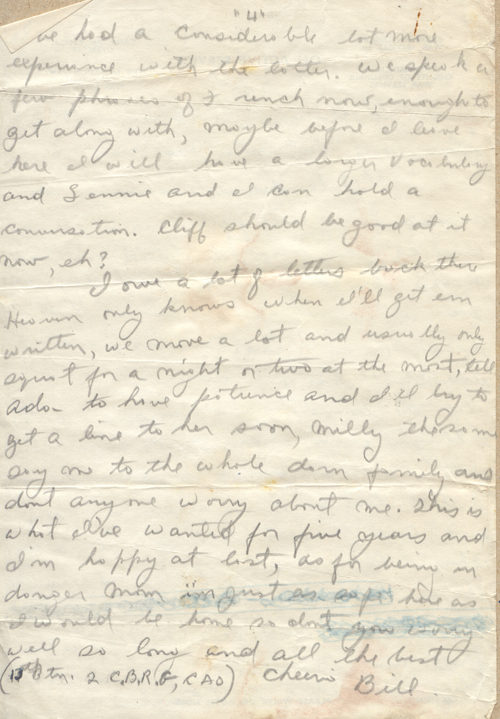 "4"
ve had a considerable lot more
experience with the latter. We speak a
few phrases of French now, enough to
get along with, maybe before I leave
here I will have a larger vocabulary
and Lennie and I can hold a
conversation. Cliff should be good at it
now, eh?
I owe a lot of letters back there
Heaven only knows when I'll get em
written, we move a lot and usually only
squat for a night or two at the most, tell
Ada to have patience and I'll try to
get a line to her soon, Milly the same
say me to the whole darn family and
dont anyone worry about me. This is
what I've wanted for five years and
I'm happy at last, as for being in
danger Mom im just as safe here as
I would be home so dont you worry
well so long and all the best
Cheerio Bill
Btn. 2 C.B.R.G, CAO)